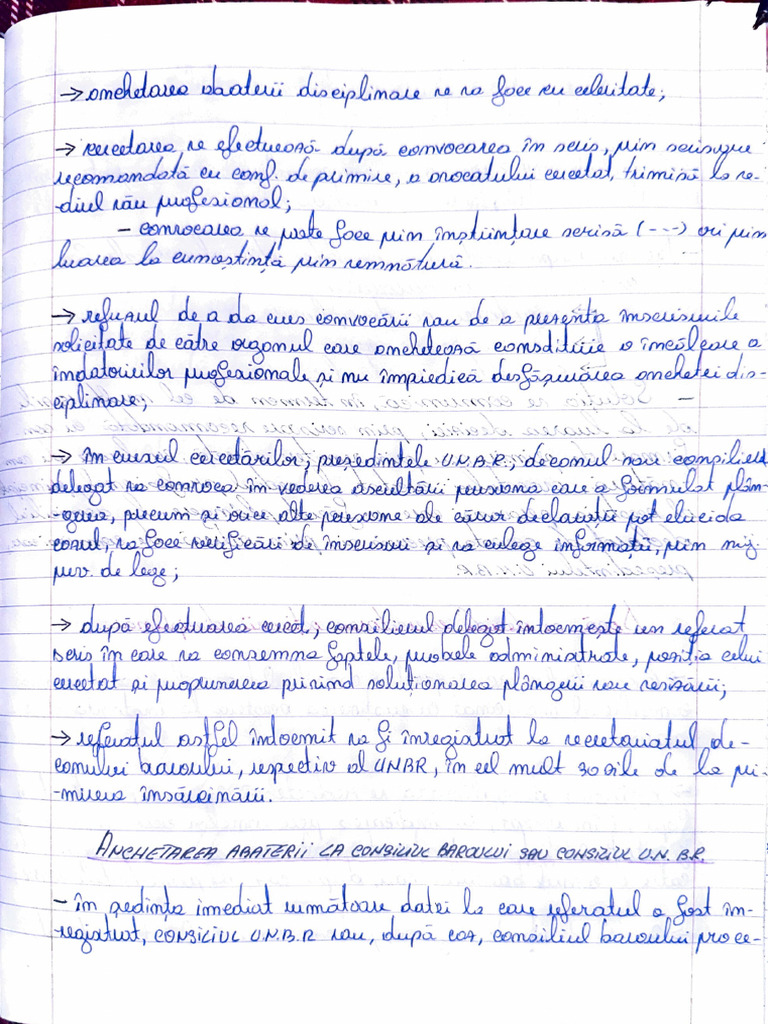 → anchetarea abaterii disciplinare se va face cu celeritate;
→ cercetarea se efectuează după convocarea în scris, prin scrisoare
recomandată cu conf. de primire, a avocatului cercetat, trimisă la se-
diul său profesional;
- convocarea se poate face prin înștiințare scrisă (---) ori prin
luarea la cunoștință prin semnătură.
→ refuzul de a da curs convocării sau de a prezenta înscrisurile
solicitate de către organul care anchetează constituie o încălcare a
îndatoririlor profesionale și nu împiedică desfășurarea anchetei dis-
ciplinare;
→ în cursul cercetărilor, președintele U.N.B.R., decanul sau consilierul
delegat va convoca în vederea ascultării persoana care a formulat plân-
-gerea, precum și orice alte persoane ale căror declarații pot elucida
cazul, va face verificări de înscrisuri și va culege informații, prin mij.
prev. de lege;
→ după efectuarea cercet., consilierul delegat întocmește un referat
scris în care va consemna faptele, probele administrate, poziția celui
cercetat și propunerea privind soluționarea plângerii sau sesizării;
→ referatul astfel întocmit va fi înregistrat la secretariatul de-
canului baroului, respectiv al UNBR, în cel mult 30 zile de la pri-
-mirea însărcinării.
ANCHETAREA ABATERII LA CONSILIUL BAROULUI SAU CONSILIUL U.N.B.R.
- în ședința imediat următoare datei la care referatul a fost în-
-registrat, CONSILIUL U.N.B.R sau, după caz, consiliul baroului proce-